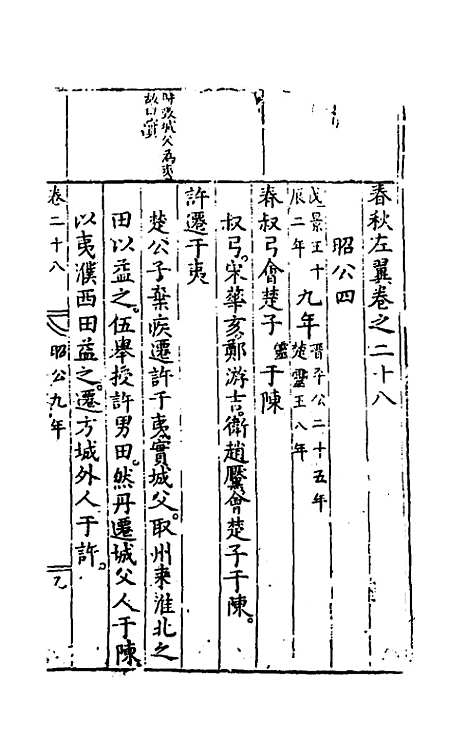 春秋左翼卷之二十八
昭公四
戊景王十
辰二年
九年
晋平公二十五年
楚靈王八年
春叔弓會楚子䖍于陳
叔弓。宋華亥。鄭游吉。衛趙黶會楚子于陳。
許遷于夷
時改城父爲夷
故曰實
楚公子棄疾遷許于夷。實城父。取州來淮北之
田以益之。伍舉授許男田。然丹遷城父人于陳。
以夷濮西田益之。遷方城外人于許。
卷二十八
昭公九年